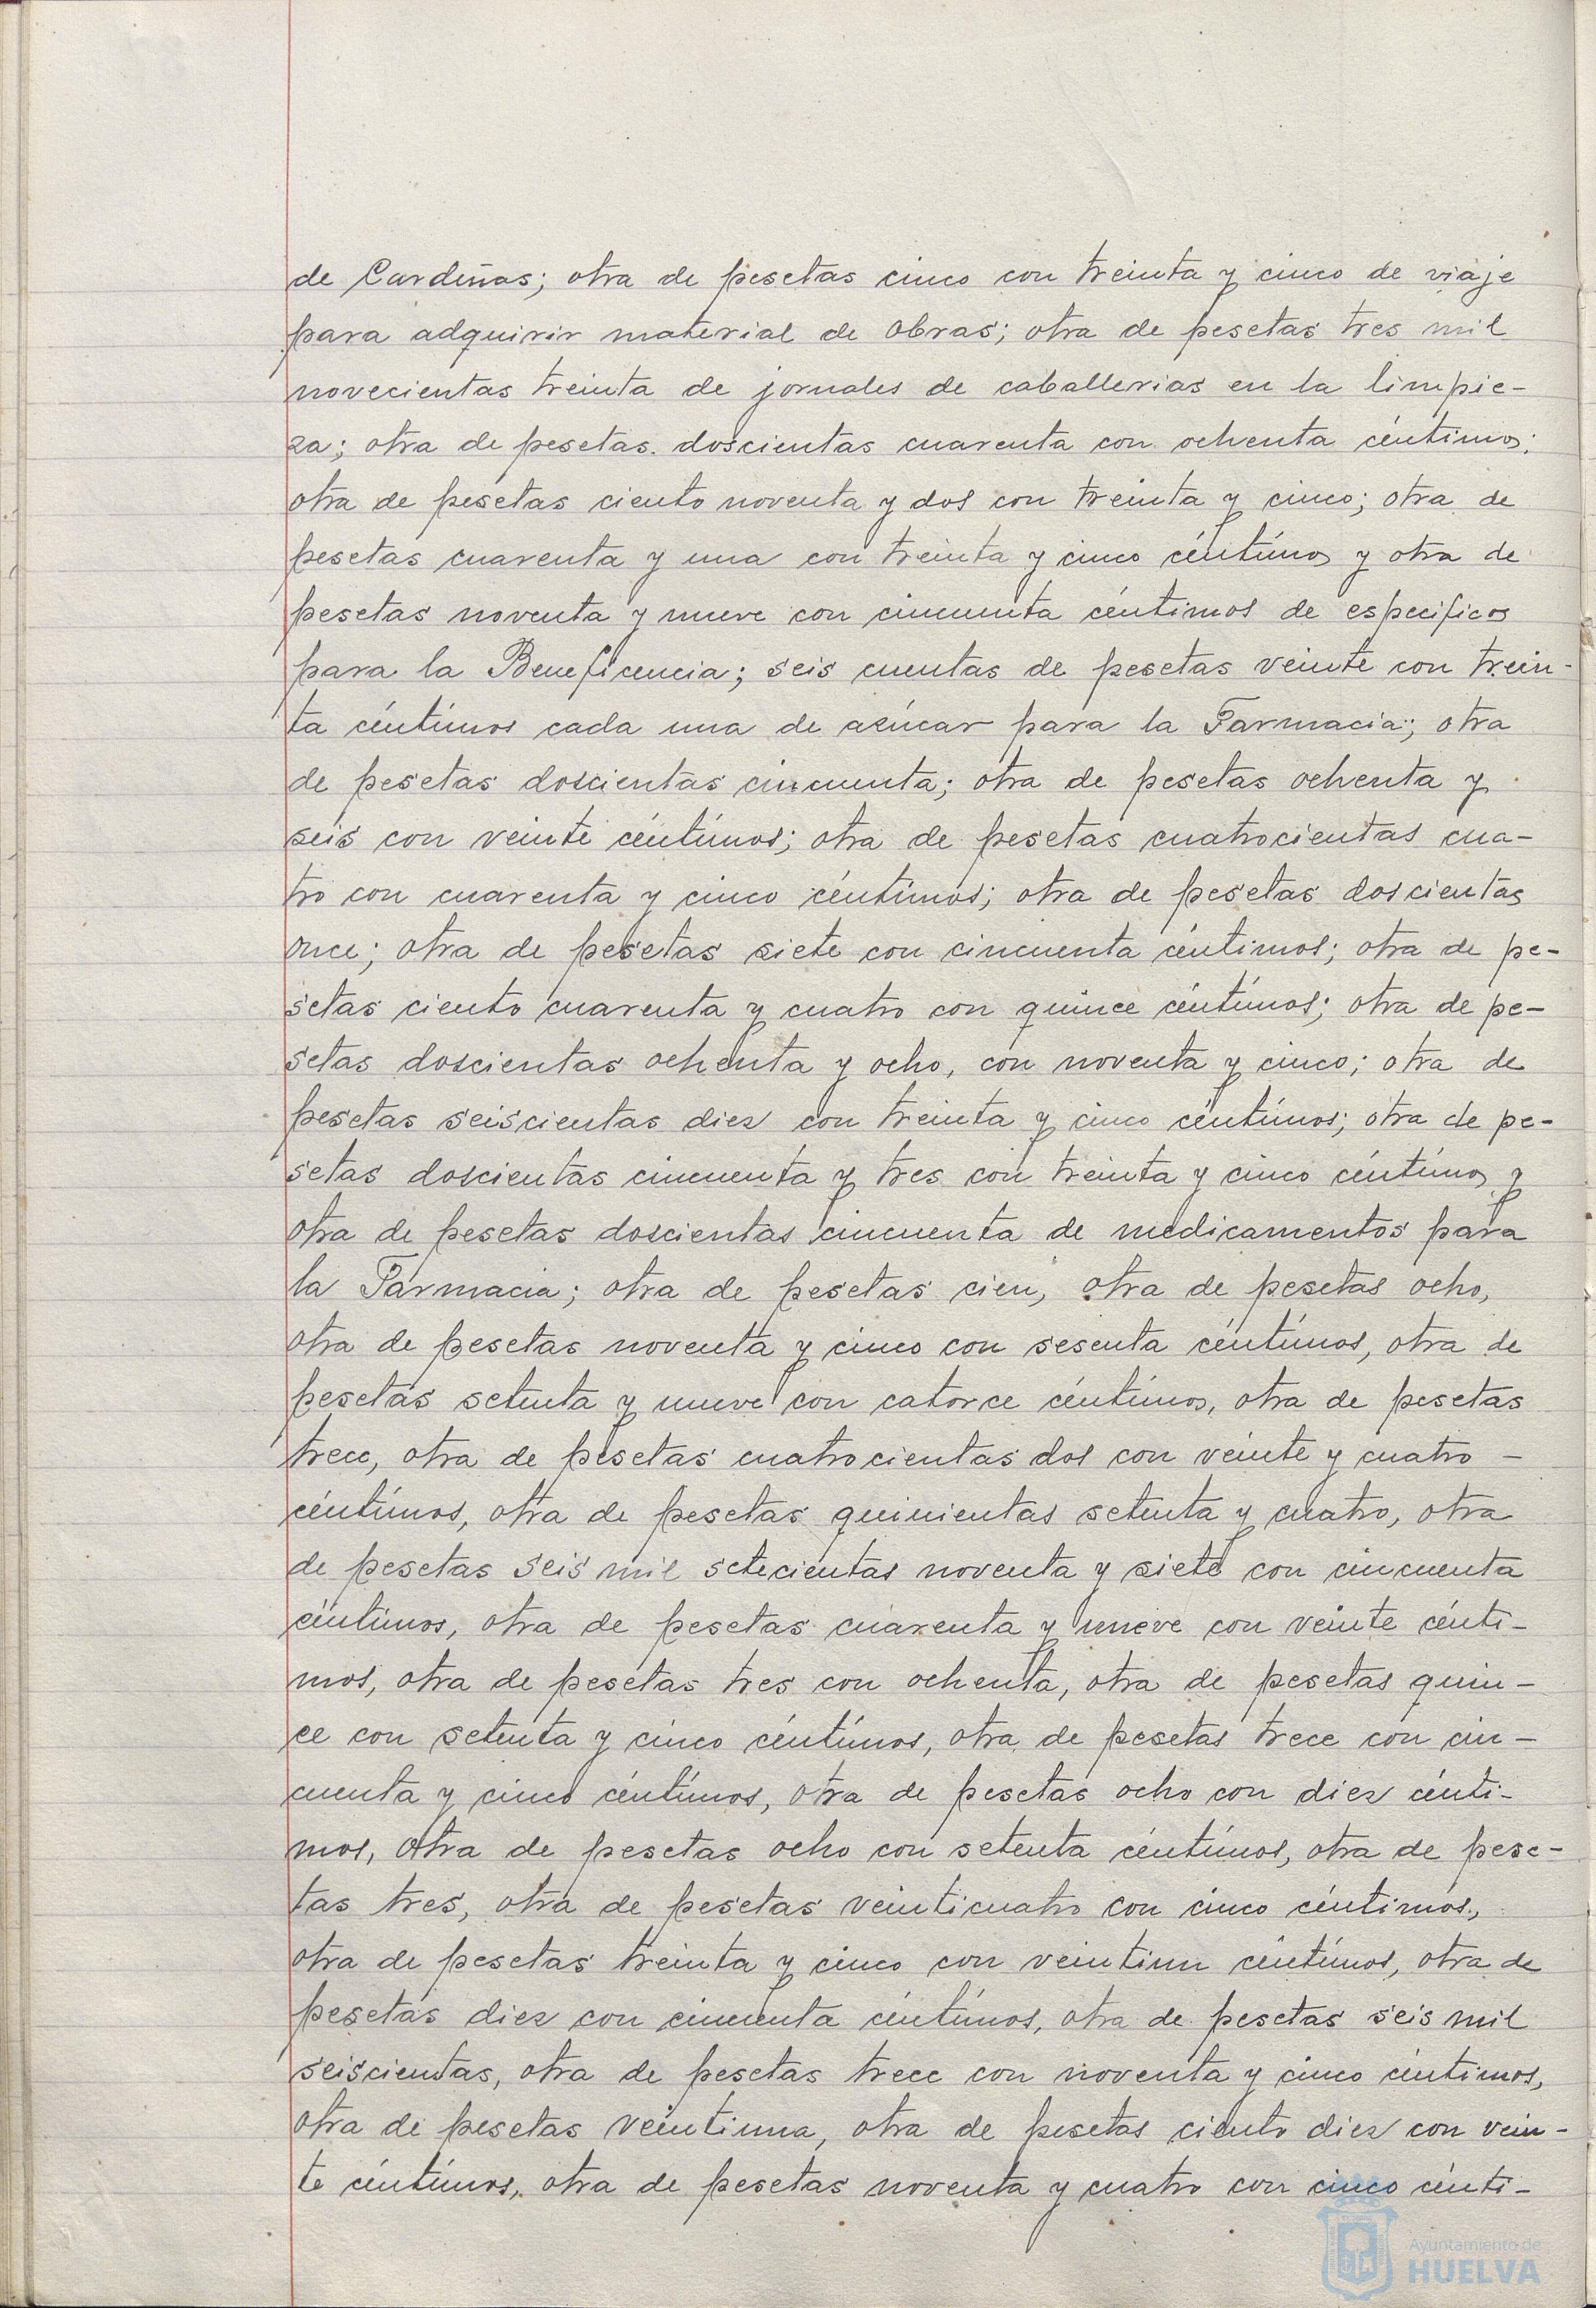 de Cardeñas; otra de pesetas cinco con treinta y cinco de viaje
para adquirir material de obras; otra de pesetas tres mil
novecientas treinta de jornales de caballerias en la limpie-
za; otra de pesetas doscientas cuarenta con ochenta céntimos;
otra de pesetas ciento noventa y dos con treinta y cinco; otra de
pesetas cuarenta y una con treinta y cinco céntimos y otra de
pesetas noventa y nueve con cincuenta céntimos de especificos
para la Beneficencia; seis cuentas de pesetas veinte con trein-
ta céntimos cada una de azúcar para la Farmacia; otra
de pesetas doscientas cincuenta; otra de pesetas ochenta y
seis con veinte céntimos; otra de pesetas cuatrocientas cua-
tro con cuarenta y cinco céntimos; otra de pesetas doscientas
once; otra de pesetas siete con cincuenta céntimos; otra de pe-
setas ciento cuarenta y cuatro con quince céntimos; otra de pe-
setas doscientas ochenta y ocho, con noventa y cinco; otra de
pesetas seiscientas diez con treinta y cinco céntimos; otra de pe-
setas doscientas cincuenta y tres con treinta y cinco céntimos y
otra de pesetas doscientas cincuenta de medicamentos para
la Farmacia; otra de pesetas cien, otra de pesetas ocho,
otra de pesetas noventa y cinco con sesenta céntimos, otra de
pesetas setenta y nueve con catorce céntimos, otra de pesetas
trece, otra de pesetas cuatrocientas dos con veinte y cuatro -
céntimos, otra de pesetas quinientas setenta y cuatro, otra
de pesetas seis mil setecientas noventa y siete con cincuenta
céntimos, otra de pesetas cuarenta y nueve con veinte cénti-
mos, otra de pesetas tres con ochenta, otra de pesetas quin-
ce con setenta y cinco céntimos, otra de pesetas trece con cin-
cuenta y cinco céntimos, otra de pesetas ocho con diez cénti-
mos, otra de pesetas ocho con setenta céntimos, otra de pese-
tas tres, otra de pesetas veinticuatro con cinco céntimos,
otra de pesetas treinta y cinco con veintiun céntimos, otra de
pesetas diez con cincuenta céntimos, otra de pesetas seis mil
seiscientas, otra de pesetas trece con noventa y cinco céntimos,
otra de pesetas veintiuna, otra de pesetas ciento diez con vein-
te céntimos, otra de pesetas noventa y cuatro con cinco cénti-
Ayuntamiento de
HUELVA